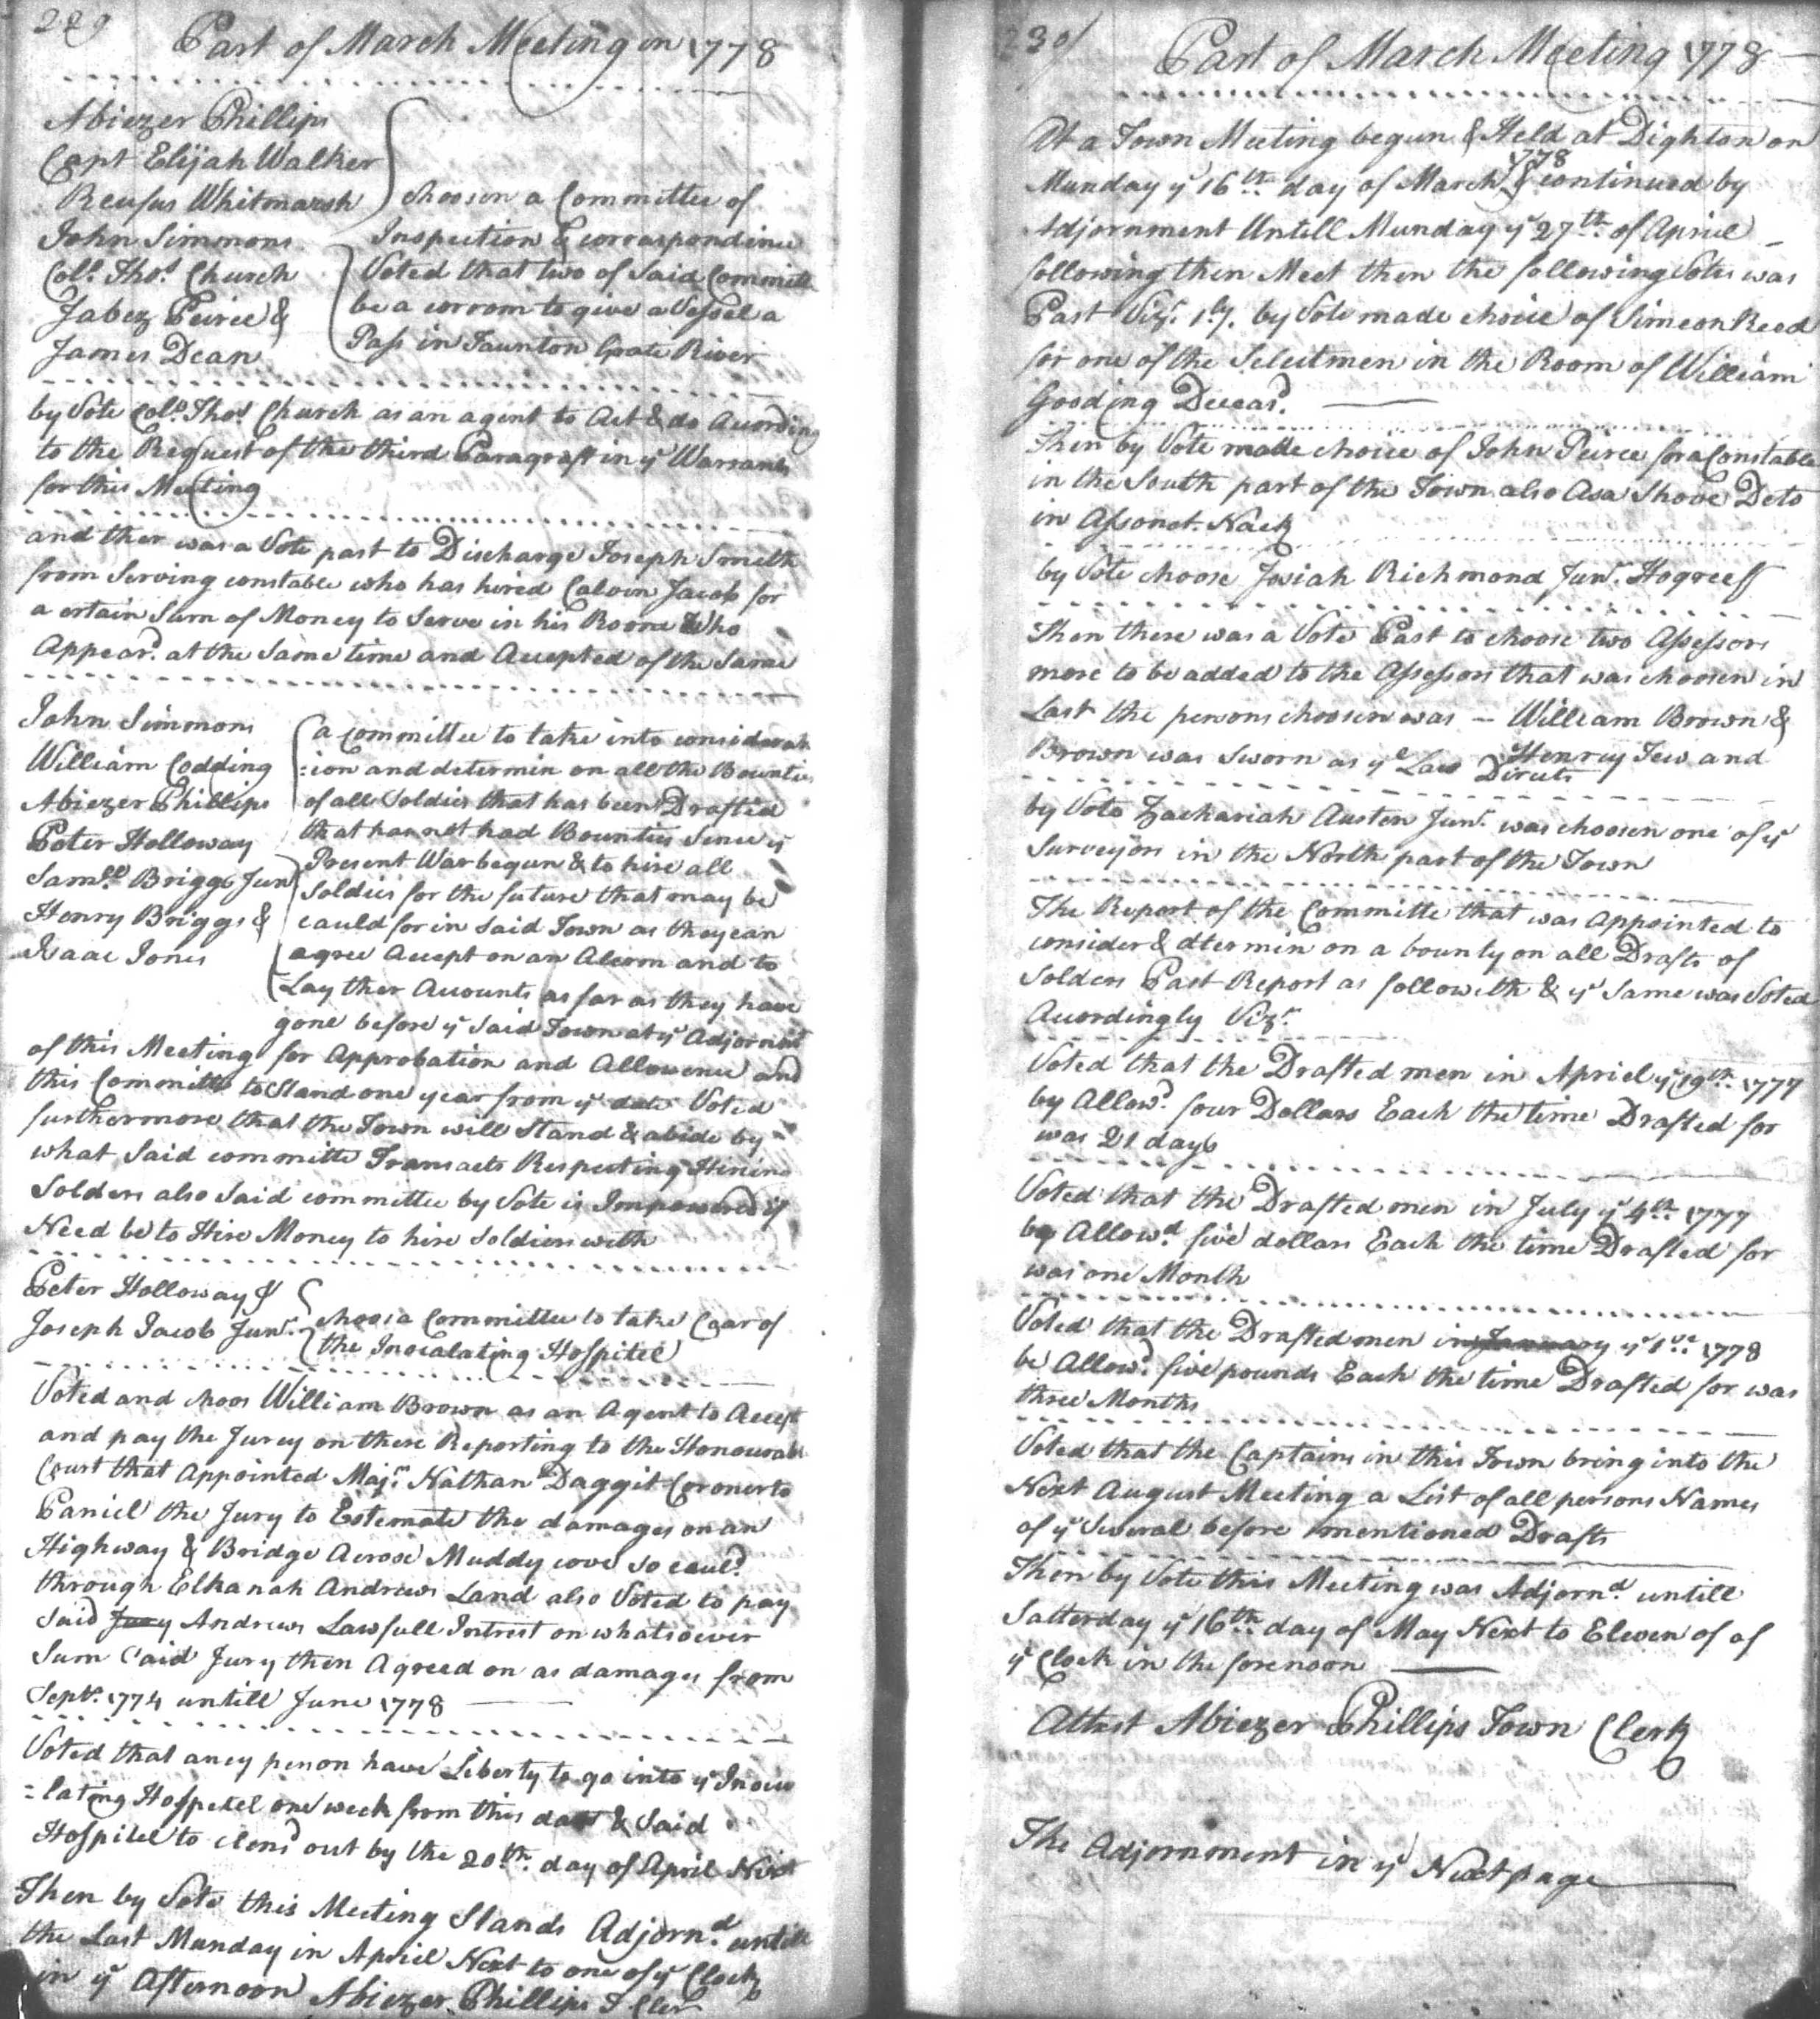 229
Part of March Meeting in 1778
Abiezer Phillips
Capt Elijah Walker
Reufus Whitmarsh
John Simmons
Coll. Thos. Church
Jabez Peirce &
James Dean
Choosen a Committee of
Inspection & correspondince
Voted that two of Said Committe
be a corrom to give a Vessel a
Pass in Taunton Grate River
by Vote Coll. Thos. Church as an agent to Act & do Acording
to the Request of the third Paragraft in ye Warrant
for this Meeting
and ther was a Vote past to Discharge Joseph Smith
from Serving constable who has hired Calvin Jacob for
a certain Sum of Money to Serve in his Room Who
Appeard. at the Same time and Accepted of the Same
John Simmons
William Codding
Abiezer Phillips
Peter Holloway
Samll. Briggs Jun
Henry Briggs &
Isaac Jones
a Committee to take into considerat
=ion and determin on all the Bounties
of all Soldies that has been Drafted
that has not had Bounties Sence ye
Present War begun & to hire all
Soldies for the future that may be
cauld for in Said Town as they can
agree Accept on an Alerom and to
Lay ther Accounts as far as they have
gone before ye Said Town at ye Adjornmt
of this Meeting for Approbation and Allowence and
this Committe to Stand one year from ye date Voted
furthermore that the Town will Stand & abide by
what Said committe Transacts Respecting Hiring
Solders also Said committee by Vote is Impowered if
Need be to Hire Money to hire Soldiers with
Peter Holloway &
Joseph Jacob Junr.
choos a Committee to take Caar of
the Inocalating Hospitel
Voted and choos William Brown as an Agent to Accept
and pay the Jurey on there Reporting to the Honourabl
Court that Appointed Majr. Nathan Daggit Coroner to
Paniel the Jury to Estemate the damages on an
Highway & Bridge Across Muddy cove So cauld.
through Elkanah Andrews Land also Voted to pay
Said Jury Andrews Lawfull Intrest on whatsoever
Sum Said Jury then Agreed on as damages from
Sept. 1774 untill June 1778
Voted that aney person have Liberty to go into ye Inocu
=lating Hospetel one week from this date & Said
Hospitel to clensd out by the 20th. day of April Next
Then by Vote this Meeting Stands Adjornd. untill
the Last Munday in Apriel Next to one of ye Clock
in ye Afternoon Abiezer Phillips T Cler
230
Part of March Meeting 1778
At a Town Meeting begun & Held at Dighton on
1778
Munday ye 16th. day of March & continued by
Adjornment Untill Munday ye 27th. of Apriel
following then Meet then the following Votes was
Past Vizt. 1ly. by Vote made choice of Simeon Reed
for one of the Selectmen in the Room of William
Gooding Deceasd.
Then by Vote made choice of John Peirce for a Constable
in the South part of the Town also Asa Shove Deto
in Assonet Nack
by Vote choose Josiah Richmond Junr. Hogreeff
Then there was a Vote Past to choose two Assessors
more to be added to the Assessors that was choosen in
Last the persons choosen was — William Brown &
Henrey Tew and
Brown was Sworn as ye Law Diructs
by Vote Zachariah Austen Junr. was choosen one of ye
Surveyors in the North part of the Town
The Report of the Committe that was Appointed to
consider & dtermin on a bounty on all Drafts of
Solders Past Report as followeth & ye Same was Voted
Acordingly Vizt.
Voted that the Drafted men in Apriel ye 19th. 1777
by Allowd. four Dollars Each the time Drafted for
was 21 days
Voted that the Drafted men in July ye 4th. 1777
be Allowd. five dollars Each the time Drafted for
was one Month
Voted that the Drafted men in January ye 1st. 1778
be Allowd. five pounds Each the time Drafted for was
three Months
Voted that the Captains in this Town bring into the
Next August Meeting a List of all persons Names
of ye Several before mentioned Drafts
Then by Vote this Meeting was Adjornd. untill
Satterday ye 16th. day of May Next to Eleven of of
ye Clock in the forenoon
Attest Abiezer Phillips Town Clerk
The Adjornment in ye Next page